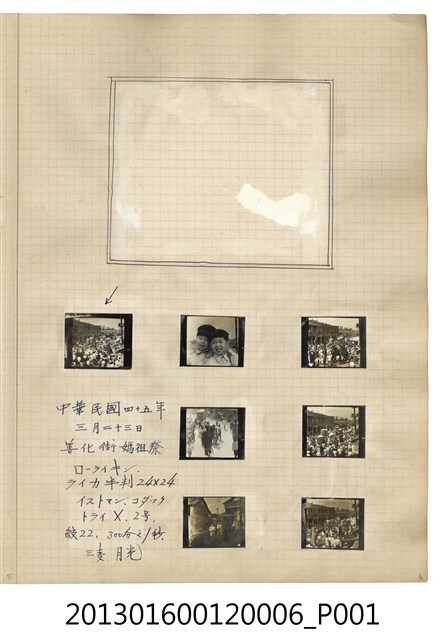 中華民國四十五年
三月二十三日
善化街媽祖祭
ローライキン
ライカ半判24X24
イストマン、コダック
トライX. 2号.
絞22, 300分之1秒.
三菱 月光
5
6
201301600120006_P001